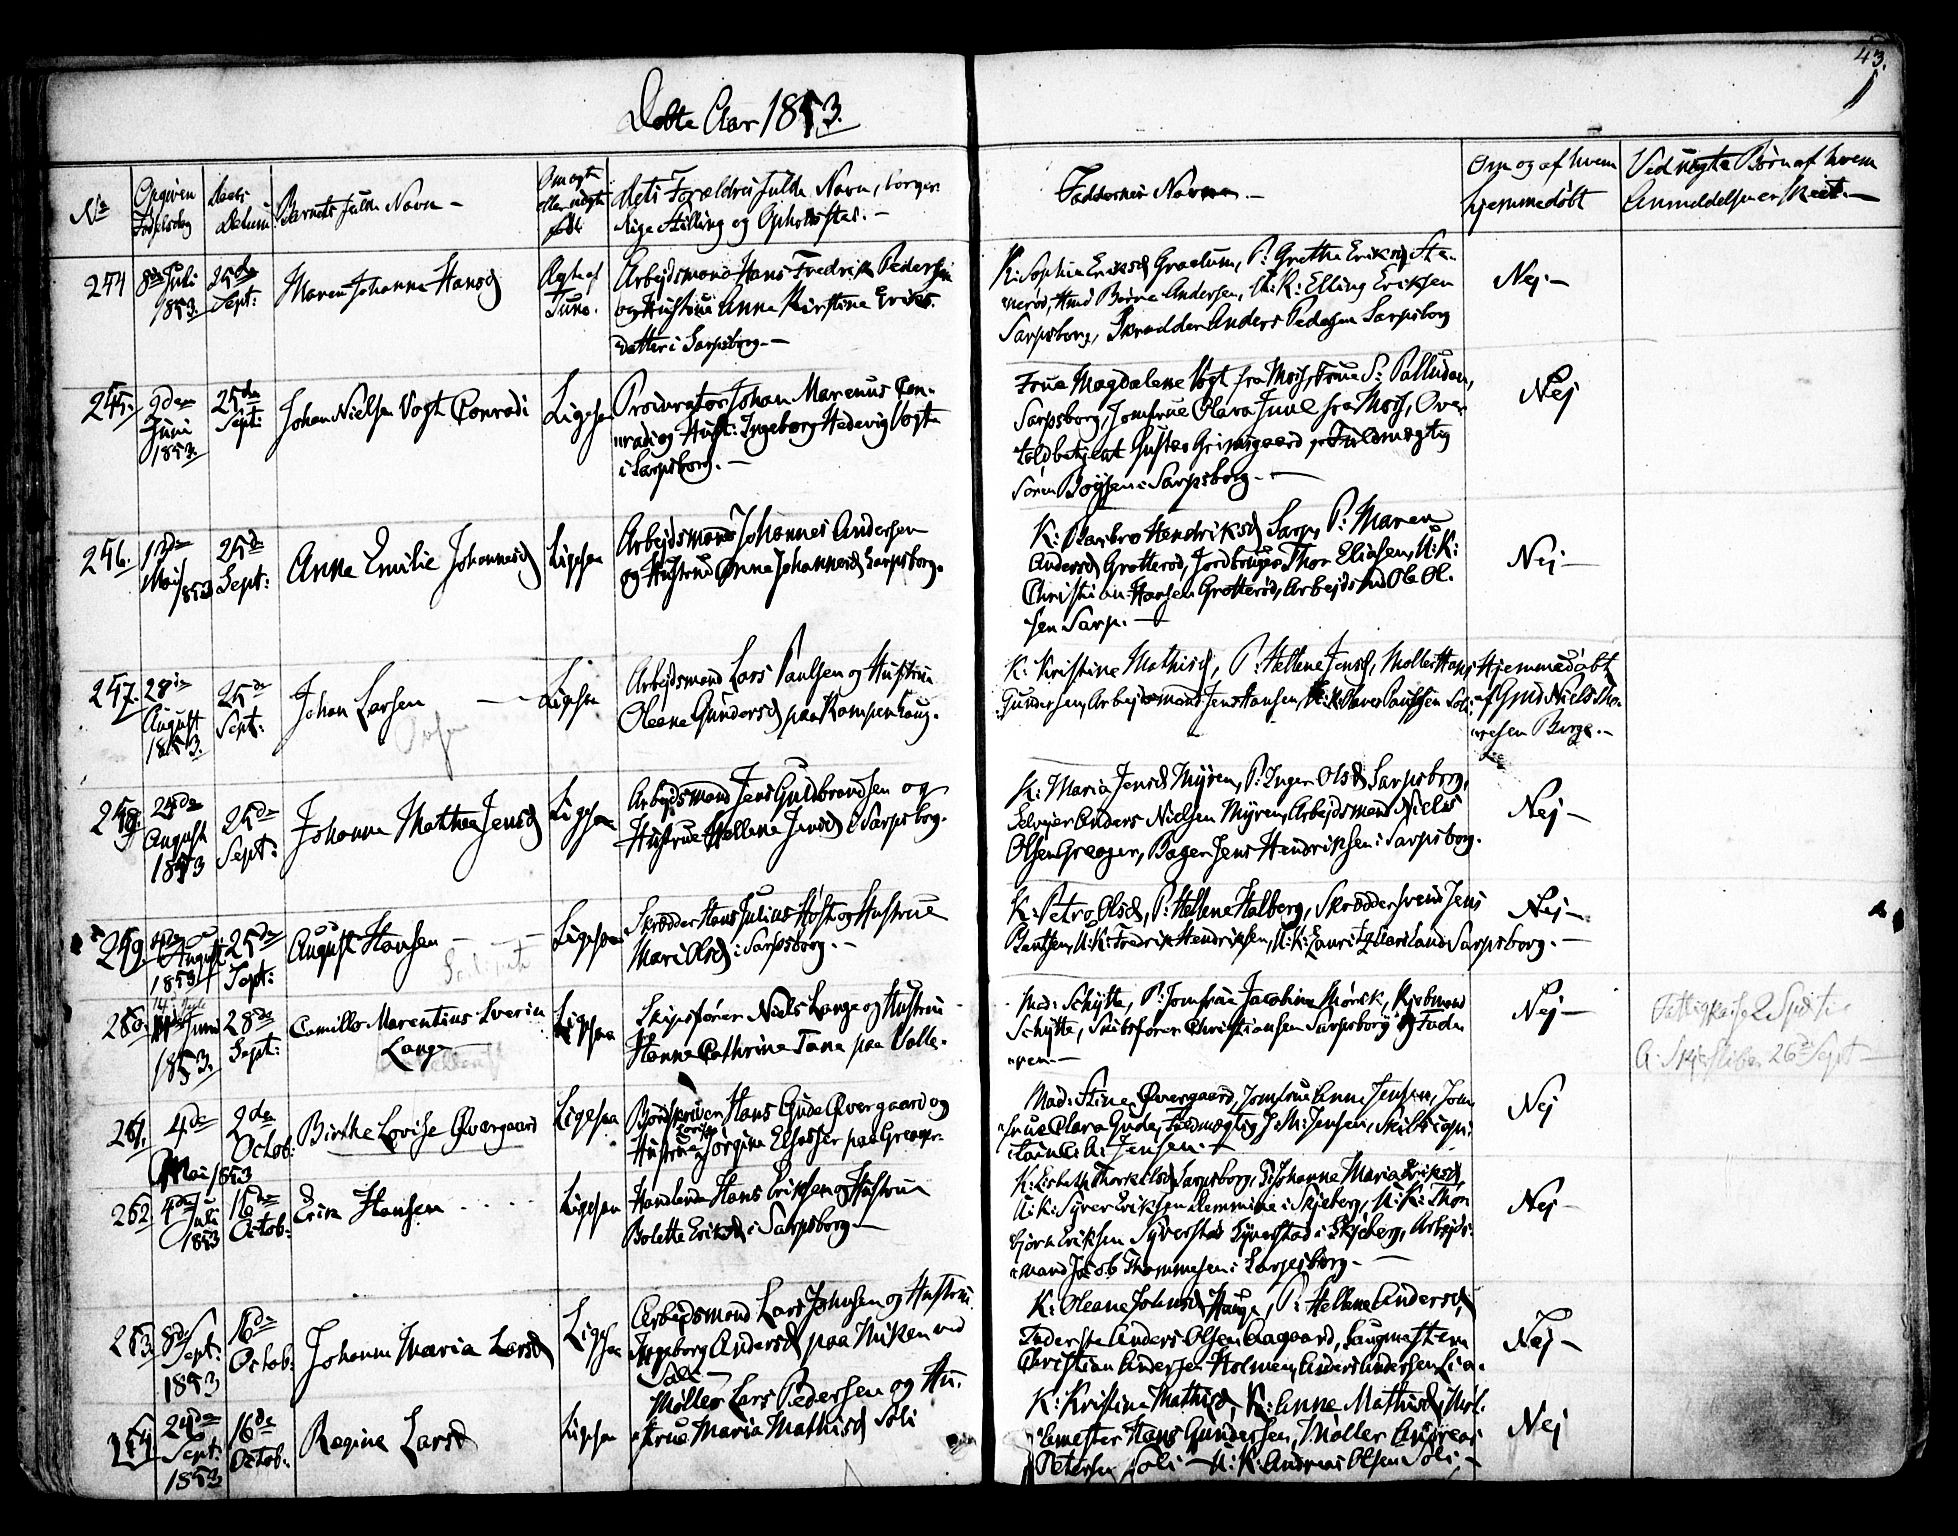 43.
Døbte Aar 1853.
No
Opgiven
Fødselsdag
Daabs
Datum
Barnets fulde Navn –
Om ægte
eller uægte
født
dets Forældres fulde Navn, borger-
lige Stilling og Opholdssted. –
Faddernes Navne –
Om og af hvem
hjemmedøbt
Ved uægte Børn af hvem
Anmeldelsen er skeet. –
244
8de Juli
1853.
25de
Sept:
Maren Johanne Hansd
Ægte af
Tune.
Arbejdsmand Hans Fredrik Pedersen
og Hustrue Anne Kirstine Eriks-
datter i Sarpsborg. –
K: Sophie Eriksd Graalum, P: Grethe Eriksd Ste-
nerød, Hmd Børre Andersen, U: K: Elling Eriksen
Sarpsborg, Skrædder Anders Pedersen Sarpsborg
Nej –
245.
9den
Juni
1853.
25de
Sept:
Johan Nielsen Vogt Conradi
Ligesaa
Procurator Johan Marenus Con-
radi og Hust: Ingeborg Hedevig Vogt
i Sarpsborg. –
Frue Magdalene Vogt fra Moss, Frue S: Palludan,
Sarpsborg, Jomfrue Clara Juul fra Moss, Over-
toldbetjent Gustav Grimsgaard, Fuldmægtig
Søren Boysen i Sarpsborg. –
Nej
246.
12de
Mai
1853
25de
Sept:
Anne Emilie Johannesd
Ligesaa
Arbejdsmand Johannes Andersen
og Hustrue Anne Johannesd Sarpsborg.
K: Barbro Hendriksd Sarp, P: Maren
Andersd Grotterød, Jordbruger Thor Eliasen, U: K:
Christian Hansen Grotterød, Arbejdsmd Ole Ol-
sen Sarp. –
Nej –
247.
28de
August
1853.
25de
Sept:
Johan Larsen
Ligesaa
Arbejdsmand Lars Paulsen og Hustrue
Oleane Gundersd paa Kampenhaug.
K: Kristine Mathisd, P: Hellene Jensd, Møller Hans
Gundersen, Arbejdsmand Jens Hansen, U: K: Oliver Paulsen Soli
Hjemmedøbt
af Gmd Niels Tho-
resen Borge. –
258
24de
August
1853
25de
Sept:
Johanne Mathea Jensd
Ligesaa
Arbejdsmand Jens Guldbrandsen og
Hustrue Hellene Jensd i Sarpsborg.
K: Maria Jensd Myren, P: Inger Olsd Sarpsborg,
Selvejer Anders Nielsen Myren, Arbejdsmand Niels
Olsen Greager, Bager Jens Hendriksen i Sarpsborg.
Nej –
259.
August
1853
25de
Sept:
August Hansen
Ligesaa
Skrædder Hans Julius Høst og Hustrue
Mari Olsd i Sarpsborg. –
K: Petra Olsd, P: Hellene Halberg, Skræddersvend Jens
Bentsen, U: K: Fredrik Hendriksen, U: K: Lauritz Sarpsborg. –
Nej –
260.
14de Juli
Juni
1853.
28de
Sept:
Camillo Marentius Severin
Lange
Ligesaa
Skipsfører Niels Lange og Hustrue
Hanne Cathrine Tane paa Valle.
Mad: Schytte, P: Jomfrue Jacobine Mørck, Kjøbmand
Schytte, Skibsfører Christiansen Sarpsborg og Fade-
ren. –
Nej –
Fattigkasse 2 Spd
A. Skjeberg 26de Sept –
261.
4de
Mai 1853
2den
Octob:
Birthe Lovise Øvergaard
Ligesaa
Brødskriver Hans Gude Øvergaard og
Hustrue Jørgine Elsasser paa Greager.
Mad: Stine Øvergaard, Jomfrue Anne Jensen, Jom-
frue Clara Gude, Fuldmægtig J. M. Jensen, Skibscapi-
tain C. A. Jensen –
Nej
262
4de
Juli
1853
16de
Octob:
Erik Hansen
Ligesaa
Handlende Hans Eriksen og Hustrue
Bolette Eriksd i Sarpsborg. –
K: Lisbeth Thorkilsd Sarpsborg, P: Johanne Maria Eriksd,
U: K: Syver Eriksen Lemmine i Skjeberg, U: K: Thor-
bjørn Eriksen Syverstad Syverstad i Skjeberg, Arbejds-
mand Jacob Thommesen i Sarpsborg. –
Nej –
263.
8de
Sept:
1853
16de
Octob:
Johanne Maria Larsd
Ligesaa
Arbejdsmand Lars Johnsen og Hustrue
Ingeborg Andersd paa Niken ved
Soli –
K: Oleane Johnsd Hauge, P: Hellene Andersd,
Anders Olsen Aagaard, Saugmester
Christian Andersen Holmen, Anders Andersen Lia.
Nej –
264
24de
Sept:
1853
16de
Octob:
Regine Larsd
Ligesaa
Møller Lars Pedersen og Hu-
strue Maria Mathisd Soli
K: Kristine Mathisd, K: Anne Mathisd, Møl-
lemester Hans Gundersen, Møller Andreas
Petersen Soli – U: K: Andreas Olsen Soli –
Nej